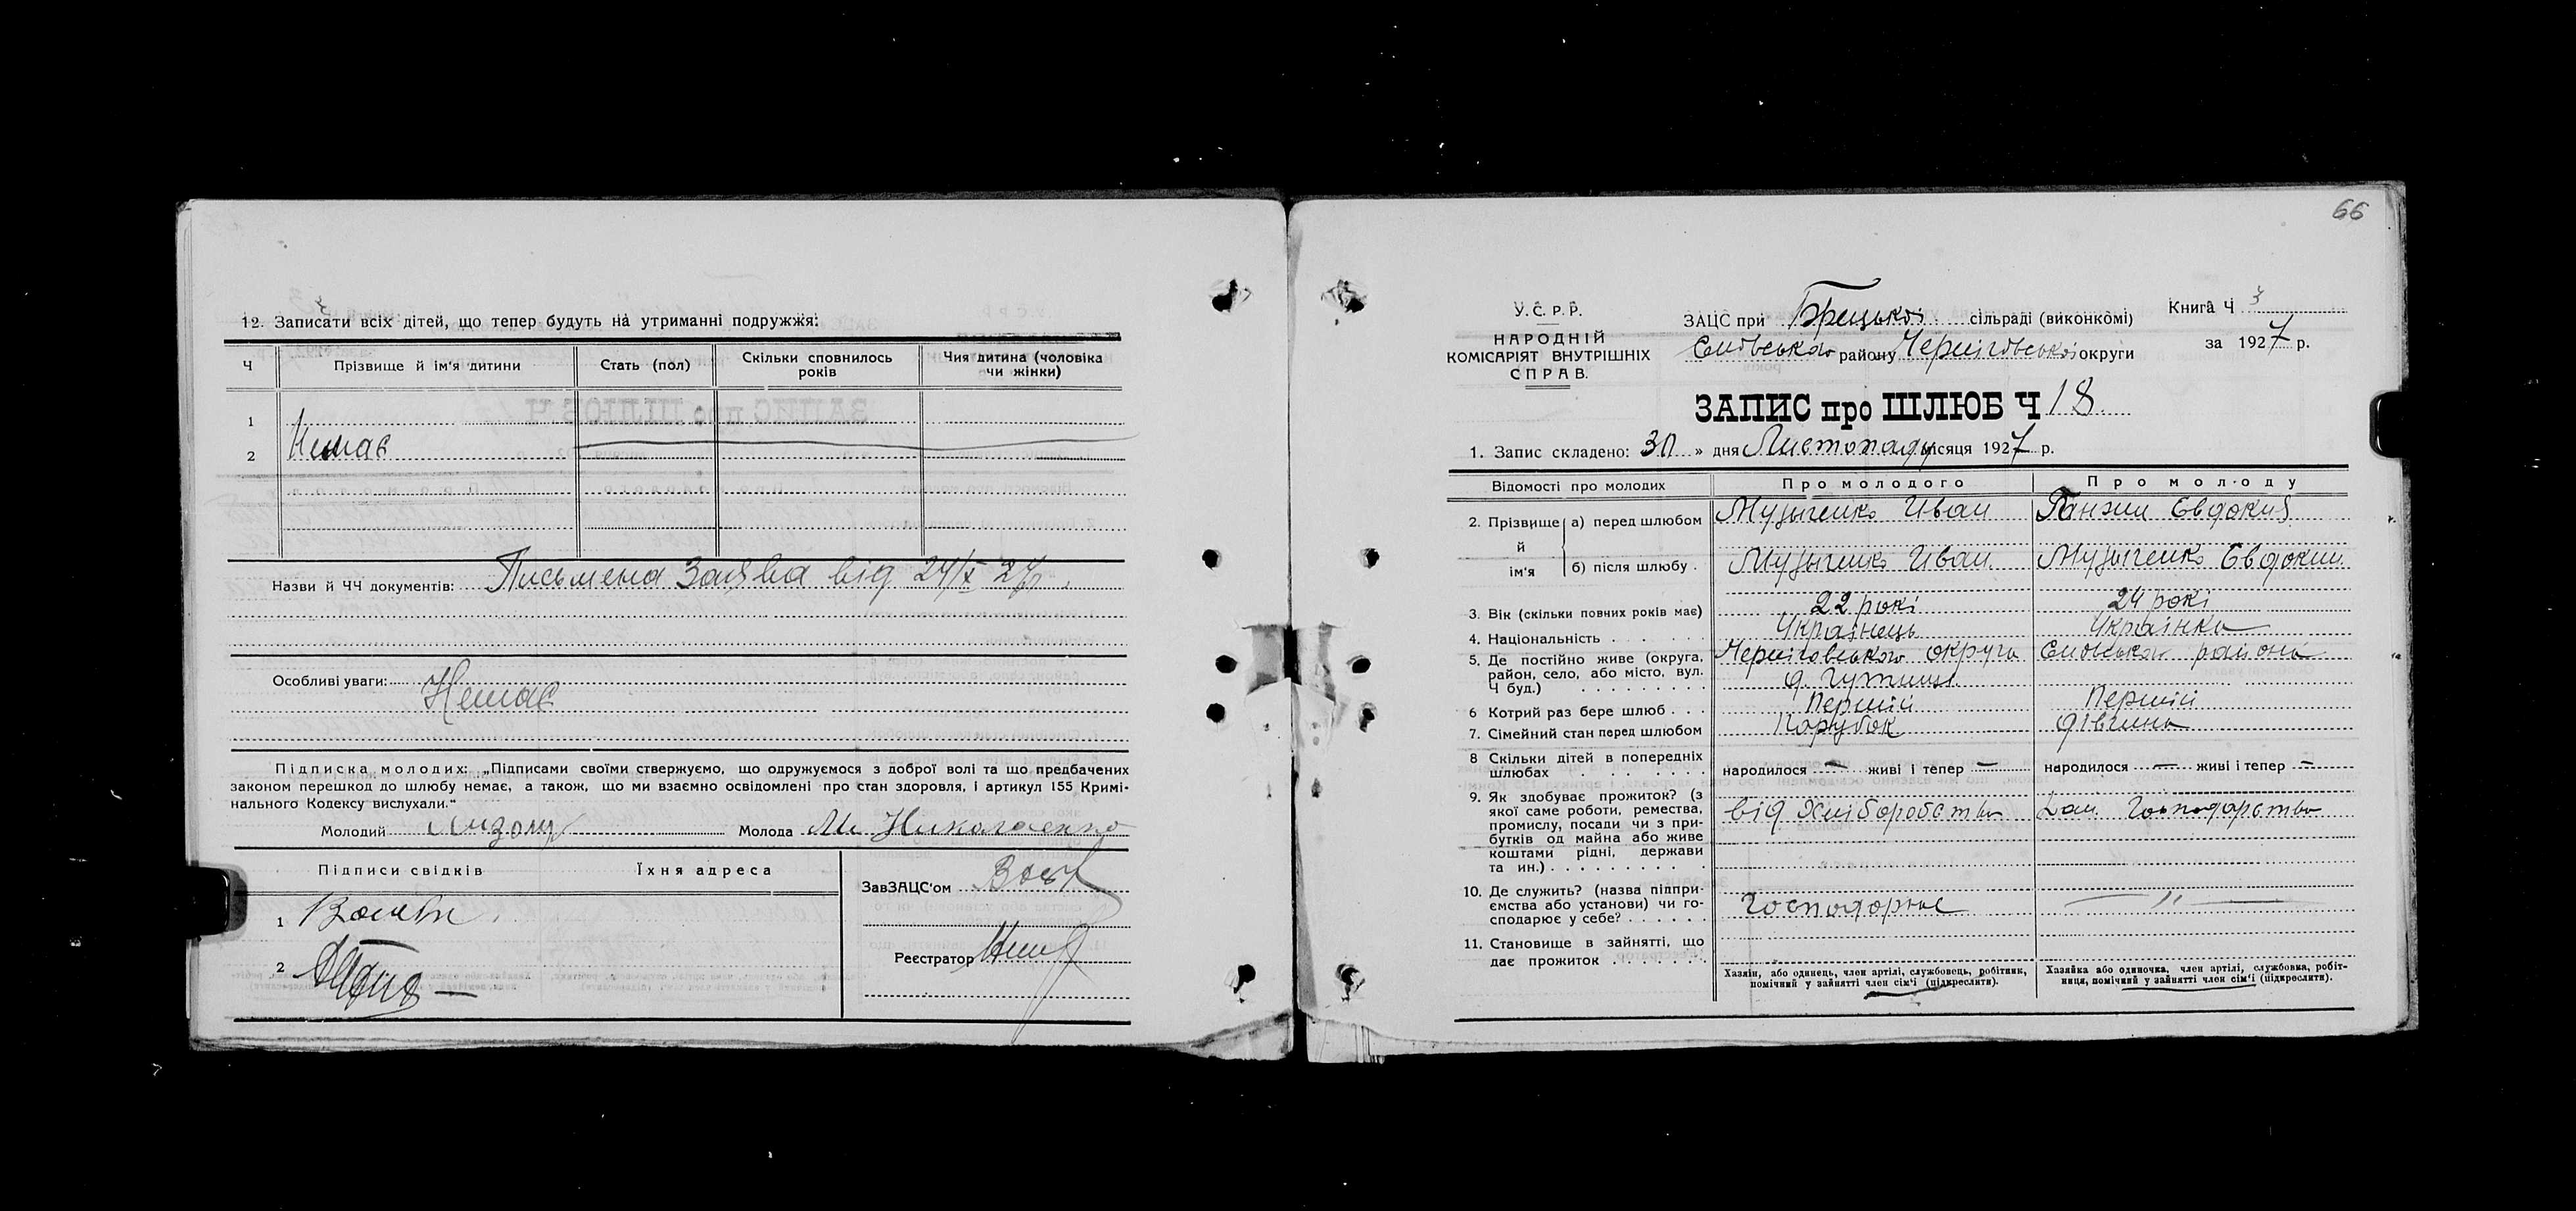 12. Записати всіх дітей, що тепер будуть на утриманні подружжя:
Ч Прізвище й ім'я дитини Стать (пол) Скільки сповнилось років Чия дитина (чоловіка чи жінки)
1
2 Немає
Назви й ЧЧ документів: Письмена Заява від
Особливі уваги:
Немає
Підписка молодих: „Підписами своїми ствержуємо, що одружуємося з доброї волі та що предбачених
законом перешкод до шлюбу немає, а також, що ми взаємно освідомлені про стан здоровля, і артикул 155 Кримі-
нального Кодексу вислухали."
Молодий Молода Николаенко
Підписи свідків Їхня адреса
1
2
ЗавЗАЦС'ом
Реєстратор
66
У.С.Р.Р.
НАРОДНІЙ
КОМІСАРІЯТ ВНУТРІШНІХ
СПРАВ.
ЗАЦС при Брецької сільраді (виконкомі)
району Чернігівської округи
Книга Ч 3
за 1927 р.
ЗАПИС про ШЛЮБ Ч 18
1. Запис складено: 30 » дня Листопаду місяця 1927 р.
Відомості про молодих Про молодого Про молоду
2. Прізвище й ім'я
а) перед шлюбом Музыченко Иван Ганжи Евдокия
б) після шлюбу . Музыченко Иван Музыченко Евдокии
3. Вік (скільки повних років має) 22 рокі 24 рокі
4. Національність . . . . . Українець Українка
5. Де постійно живе (округа,
район, село, або місто, вул.
Ч буд.) . . . . . . . . .
Черніговського округа района
6 Котрий раз бере шлюб . . . Першій Першій
7. Сімейний стан перед шлюбом Парубок дівчина
8 Скільки дітей в попередніх
шлюбах . . . . . . . народилося — живі і тепер — народилося — живі і тепер —
9. Як здобуває прожиток? (з
якої саме роботи, ремества,
промислу, посади чи з при-
бутків од майна або живе
коштами рідні, держави
та ин.) . . . . . . . . .
від Хліборобства Дом. Господарства
10. Де служить? (назва підпри-
ємства або установи) чи го-
сподарює у себе? . . . . . .
Господорює — " —
11. Становище в зайнятті, що
дає прожиток . . . . . . .
Хазяїн, або одинець, член артілі, службовець, робітник,
помічний у зайнятті член сім'ї (підкреслити).
Хазяйка або одиночка, член артілі, службовка, робіт-
ниця, помічний у зайнятті член сім'ї (підкреслити).